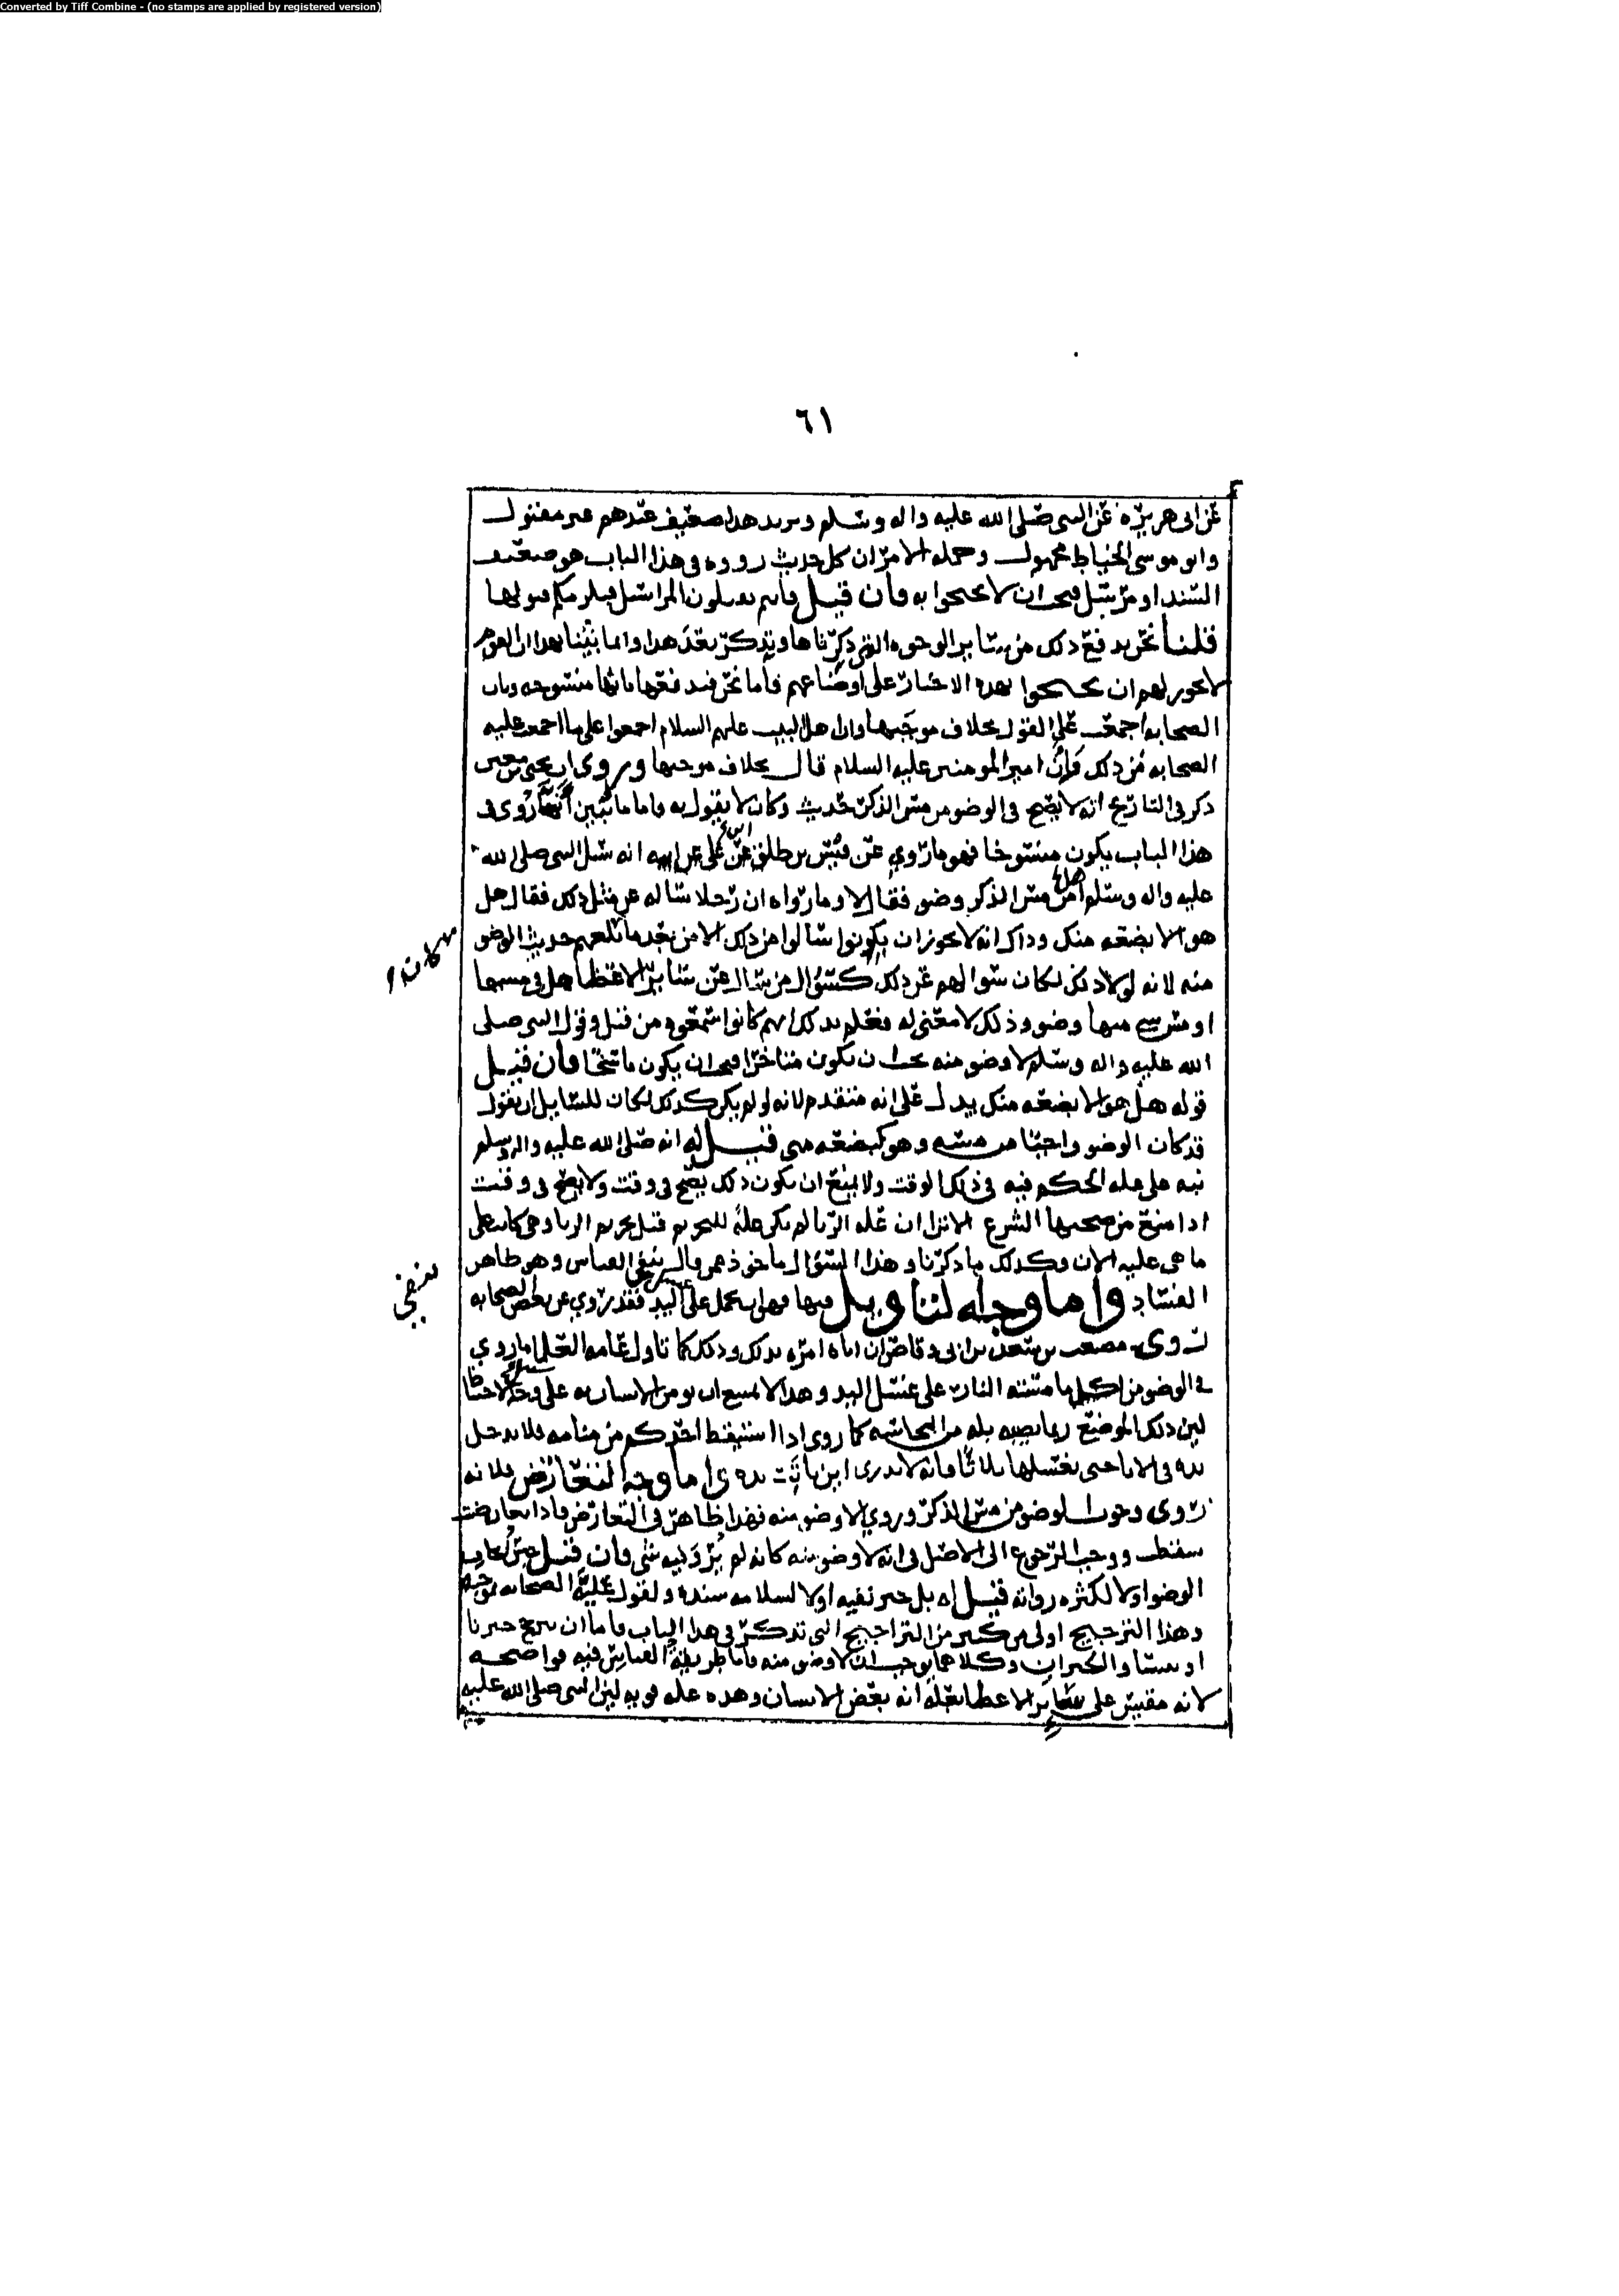 Converted by Tiff Combine - (no stamps are applied by registered version)
٦١
عن ابي هريره عن النبي صلى الله عليه واله وسلم ويزيد هذا ضعيف عندهم غير مقبول
وابو موسى الخياط مجهول وجمله الامر ان كل حديث رووه في هذا الباب هو ضعيف
السند او مرسل فيجب ان لا يحتجوا به فان قيل فانتم تقبلون المراسيل فيلزمكم قبولها
قلنا نحن ندفع ذلك من ساير الوجوه التي ذكرناها ونذكر بعد هذا وانما بينا بهذا ان القوم
لا يجوز لهم ان يحتجوا بهذه الاخبار على اوضاعهم فاما نحن فندفعها بانها منسوخه وبان
الصحابه اجمعت على القول بخلاف موجبها وان اهل البيت عليهم السلام اجمعوا على ما اجمعت عليه
الصحابه من ذلك فان امير المومنين عليه السلام قال بخلاف موجبها وروى ان يحيى بن معين
ذكر في التاريخ انه لا يصح في الوضو من مس الذكر حديث وكان لا يقول به فاما ما يبين ان ما روي في
هذا الباب يكون منسوخا فهو ما روي عن قيس بن طلق بن علي عن ابيه انه سئل النبي صلى الله
عليه واله وسلم هل من مس الذكر وضو فقال لا وما رواه ان رجلا ساله عن مثل ذلك فقال هل
هو الا بضعه منك وذاك انه لا يجوز ان يكونوا سالوا عن ذلك الا من بعد ما بلغهم حديث الوضو
منه لانه لولا ذلك لكان سوالهم عن ذلك كسؤال من سال عن ساير الاعضا هل في مسها
او مس شي منها وضو وذلك لا معنى له فعلم بذلك انهم كانوا سمعوه من قبل وقول النبي صلى
الله عليه واله وسلم لا وضو منه يجب ان يكون متاخرا فيجب ان يكون ناسخا فان قيل
قوله هل هو الا بضعه منك يدل على انه متقدم لانه لو لم يكن كذلك لكان للسايل ان يقول
قد كان الوضو واجبا من مسه وهو كبضعه مني قيل له انه صلى الله عليه واله وسلم
نبه على عله الحكم فيه في ذلك الوقت ولا يمنع ان يكون ذلك يصح في وقت ولا يصح في وقت
اذا منع من صحتها الشرع الا ترا ان عله الربا لم تكن علة للتحريم قبل تحريم الربا وهي كانت على
ما هي عليه الان وكذلك ما ذكرنا وهذا السؤال ماخوذ ممن قال بنفي القياس وهو ظاهر
الفساد واما وجه التاويل فيها فهو ان يحمل على غسل اليد فقد روي عن بعض الصحابه
روى مصعب بن سعد بن ابي وقاص ان اباه امره بذلك وذلك كما تاول عامه العلما ما روي
في الوضو من اكل ما مسته النار على غسل اليد وهذا لا يمتنع ان يومر الانسان به على وجه الاحتياط
لان ذلك الموضع ربما يصيبه بله من النجاسه كما روى اذا استيقظ احدكم من منامه فلا يدخل
يده في الانا حتى يغسلها ثلاثا فانه لا يدرى اين باتت يده واما وجه التعارض فلانه
روى وجوب الوضو من مس الذكر وروي لا وضو منه فهذا ظاهر في التعارض فاذا تعارضت
سقطت ووجب الرجوع الى الاصل في انه لا وضو منه كانه لم يرد فيه شي فان قيل خبر ايجاب
الوضو اولا لكثره رواته قيل له بل خبر نفيه اولا لسلامه سنده ولقول عليه الصحابه بموجبه
وهذا الترجيح اولى من كثير من التراجيح التي تذكر في هذا الباب فاما ان يرجح خبرنا
او يستوا الخبران وكلاهما يوجب ان لا وضو منه واما طريقة القياس فيه فواضحه
لانه مقيس على ساير الاعضا بعلة انه بعض الانسان وهذه عله قويه لان النبي صلى الله عليه